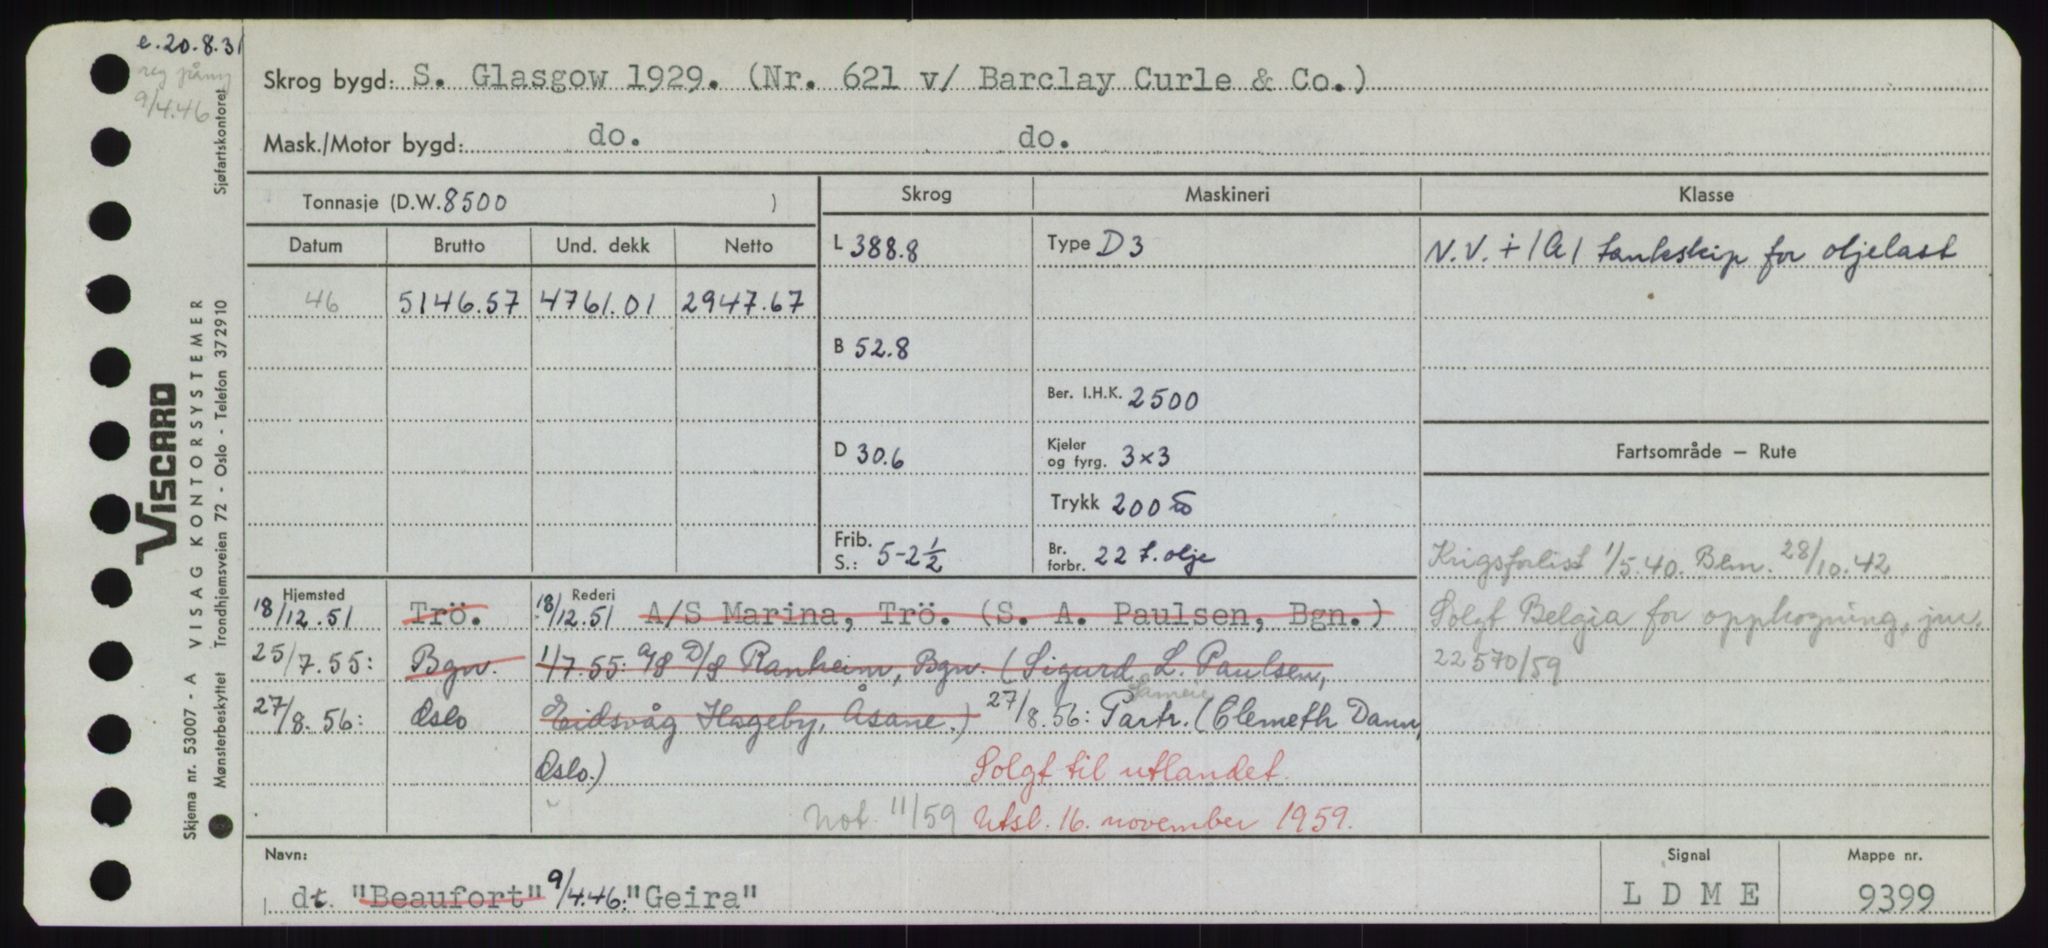 e. 20.8.31
reg påny
9/4.46
Skrog bygd: S. Glasgow 1929. (Nr. 621 v/ Barclay Curle & Co.)
Mask./Motor bygd: do. do.
Tonnasje (D.W. 8500 )
Skrog Maskineri Klasse
Datum Brutto Und. dekk Netto
46 5146.57 4761.01 2947.67
L 388.8
B 52.8
D 30.6
Frib. S.: 5-2 1/2
Type D3
Ber. I.H.K. 2500
Kjeler og fyrg. 3x3
Trykk 200 ℔
Br. forbr. 22 t. olje
N.V. + 1A1 tankskip for oljelast
Fartsområde – Rute
Krigsforlist 1/5.40. Blm. 28/10.42
Solgt Belgia for opphogning, jnr.
22570/59
Hjemsted Rederi
18/12.51 Trö. 18/12.51 A/S Marina, Trö. (S. A. Paulsen, Bgn.)
25/7.55: Bgn. 1/7.55: A/S D/S Ranheim, Bgn. (Sigurd L. Paulsen,
27/8.56: Oslo Eidsvåg Hageby, Åsane.) 27/8.56: Partr. (Clemeth Damm,
Oslo.) Solgt til utlandet.
Not. 11/59 Utsl. 16. november 1959.
Navn: Signal Mappe nr.
dt. "Beaufort" 9/4.46: "Geira" LDME 9399
Sjøfartskontoret
VISCARD
VISAG KONTORSYSTEMER
Trondhjemsveien 72 - Oslo - Telefon 372910
Skjema nr. 53007 - A
Mønsterbeskyttet